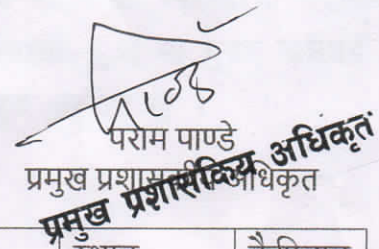 पराम पाण्डे
प्रमुख प्रशासकीय अधिकृत
प्रमुख प्रशासकिय अधिकृत